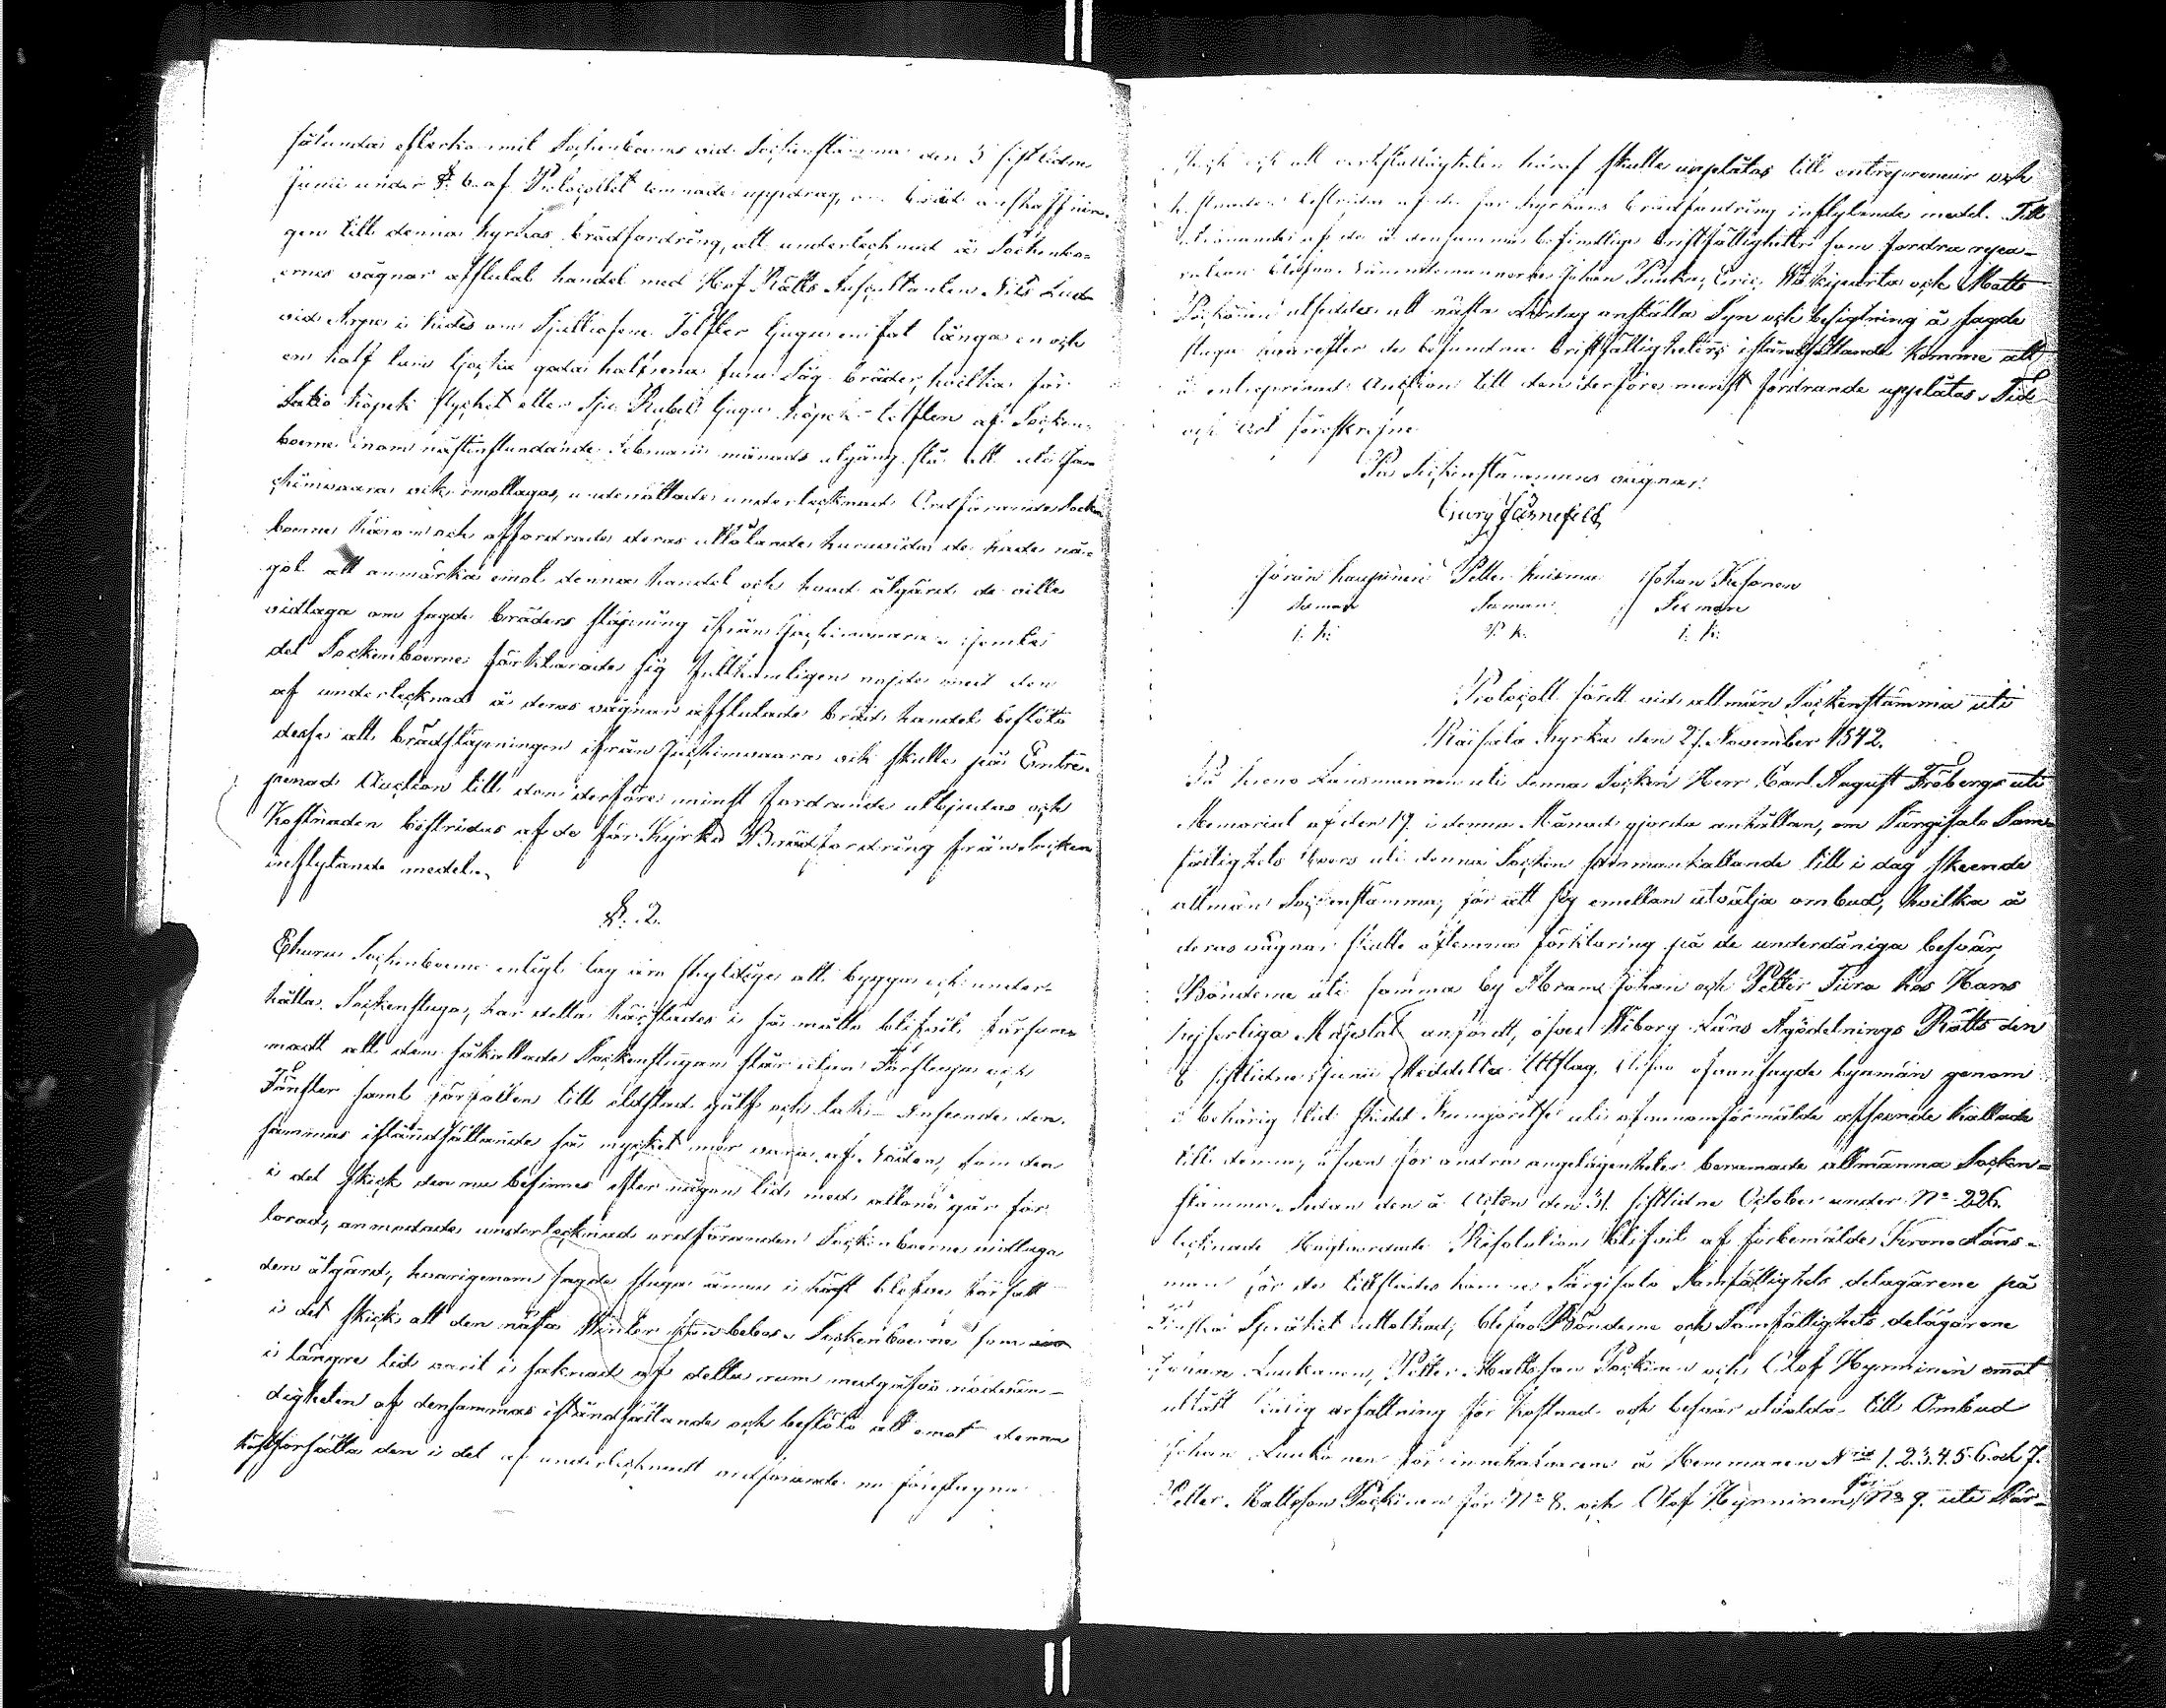 sålunda efterkommit Sockenboernes vid Sockenstämma den 5 sistlidne
Junii under §. 6. af Protocollet lemnade uppdrag, om bräd anskaffnin-
gen till denna kyrkas brädfordring, att undertecknad å Sockenbo-
ernes vägnar afslutat handel med Hof Rätts Auscultanten Nils Lud-
vid om Sjuttiofem Tolfter tjugu en fot långa en och
en half tum tjocka goda halfrena furu Såg bräder, hvilka för
Sextio köpek stycket eller sju Rubel tjugu köpek tolften af Socken-
boerne inom nästinstundande Februarii månads utgång
och emottagas, underrättade undertecknad Ordförande Socken
boerne härom och affordrade deras utlåtande huruvida de hade nå-
got att anmärka emot denna handel och hvad åtgärd de ville
vidtaga om sagde bräders släpning ifrån
det Sockenboerne förklarade sig fullkomligen nöjde med den
af undertecknad å deras vägnar afslutade bräd handel beslöto
desse att brädsläpningen ifrån och skulle på Entre-
penad Auction till den derföre minst fordrande utbjudas och
Kostnaden bestridas af de för Kyrko Brädfordring från Socken
inflytande medel.
§. 2.
Ehuru Sockenboerne enligt lag äro skyldige att bygga och under-
hålla Sockenstuga, har detta härstädes i så måtto blifvit försum-
madt att den såkallade Sockenstugan står utan Farstuga och
Fönster samt förfallen till eldstad golf och tak. Anseende den-
sammas iståndsättande så mycket mer vara af nöden, som den
i det skick den nu befinnes efter någon tid med allone går för-
lorad, anmodade undertecknad ordföranden Sockenboerne vidtaga
den åtgärd, hvarigenom sagde stuga ännu i höst blefve försatt
i det skick att den nästa Winter kan bebos. Sockenboerne som
i längre tid varit i saknad af detta rum medgåfvo nödvän-
digheten af densammas iståndsättande och beslöto att emot denna
höst försätta den i det af undertecknad ordförande nu föreslagna
skick och att verkställigheten häraf skulle upplåtas till entrepreneur och
kostnaden bestridas af de för Kyrkans Brädfordring inflytande medel. Till
af de å densamma befindtlige bristfälligheter som fordra repa-
ration blefvo Nämndemännerne Johan Eric och Matts
Pöckönen utsedde att nästa Lördag anställa Syn och besigtning å sagde
stuga hvarefter de befundne bristfälligheters iståndsättande komme att
å entreprenad Auction till den derföre minst fordrande upplåtas. Tid
och Ort föreskrefne
På Sockenstämmans vägnar:
Georg Järnefelt
Jöran Petter Kuisma Johan
Sexman Sexman Sexman
Protocoll fördt vid allmän Sockenstämma uti
Räisälä kyrka den 27 November 1842.
På Krono Länsmannen uti denna Socken Herr Carl August Frobergs uti
Memorial af den 19 i denna Månad gjorda anhållan, om Särgisalo Sam-
fällighets boers uti denna Socken sammankallande till i dag skeende
allmän Sockenstämma, för att sig emellan utvälja ombud, hvilka å
deras vägnar skulle aflemna förklaring på de underdåniga besvär,
Bönderne uti samma by Abram Johan och Petter Tiira hos Hans
kejserliga Majestät anfördt, öfver Wiborg Läns Ägodelnings Rätts den
8 sistlidne Junii Meddelta Utslag, blefvo ofvansagde byamän genom
i behörig tid skedd kungörelse uti ofvanomförmälde afseende kallade
till denna, äfven för andra angelägenheter beramade allmänna Socken-
stämma. Sedan den å Acten den 31 sistlidne October under No 226.
tecknade Högtvördade Resolution blifvit af förbemälde Krono Läns-
man för de tillstädes komne Särgisalo Samfällighets delägarene på
Finska Språket uttolkad, blefvo Bönderne och Samfällighets delägarene
Johan Laukanen, Petter Mattsson Pöckinen och Olof Hynninen emot
utfäst billig ersättning för kostnad och besvär utvalda till Ombud
Johan Laukanen för innehafvarene å Hemmanen Nris 1. 2. 3. 4. 5. 6. och 7.
Petter Mattsson Pöckinen för No 8. och Olof Hynninen för No 9. uti Sär-